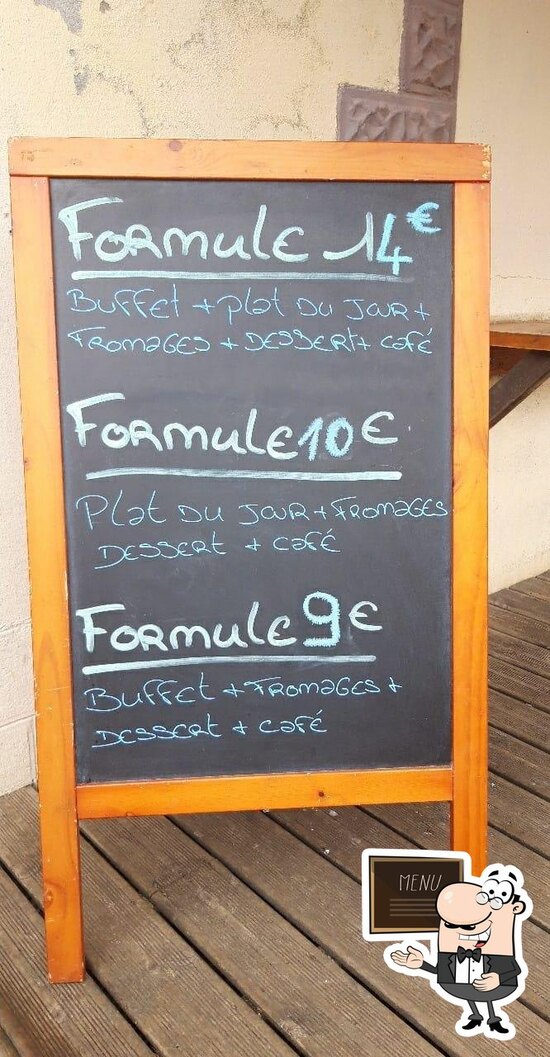 Formule 14€
Buffet + plat du jour +
Fromages + Dessert + café
Formule 10€
Plat du jour + Fromages
Dessert + café
Formule 9€
Buffet + Fromages +
Dessert + café
MENU